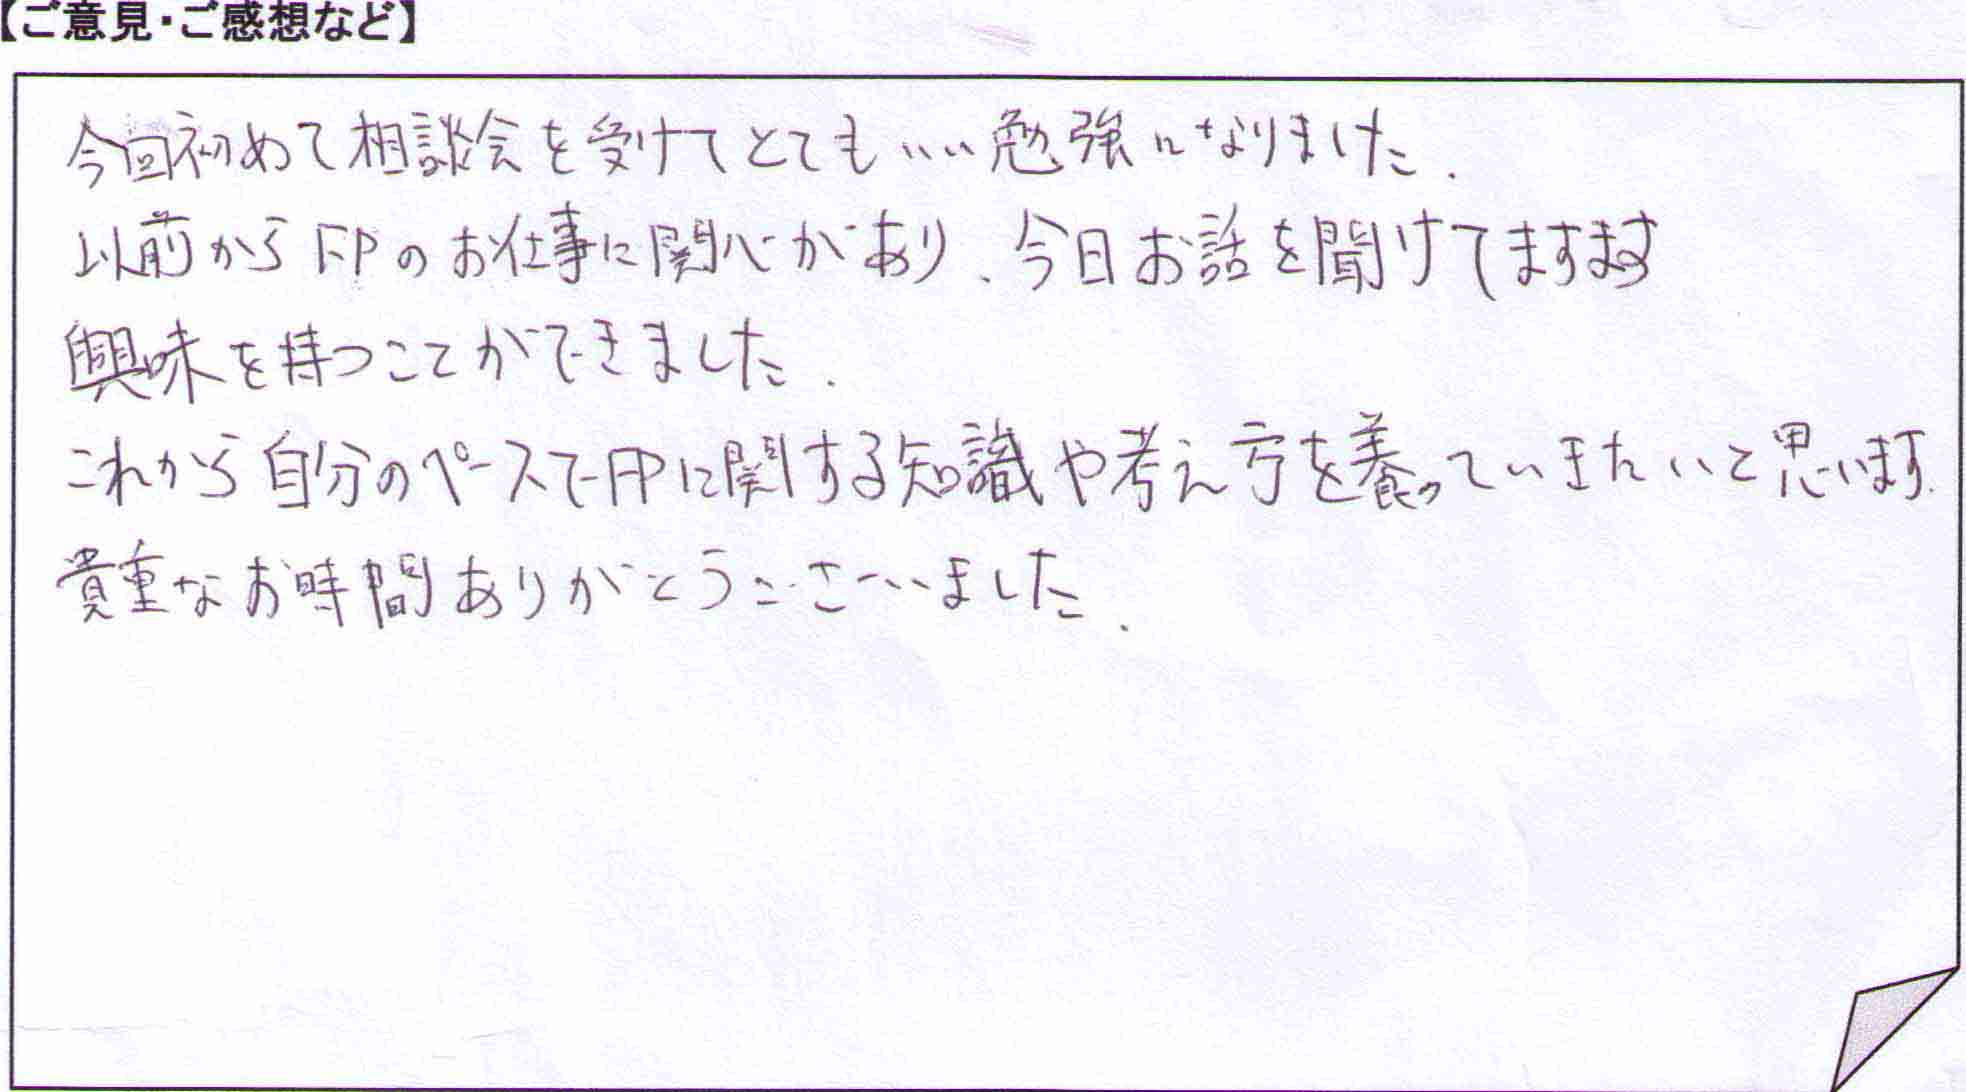 【ご意見・ご感想など】
今回初めて相談会を受けてとてもいい勉強になりました.
以前からFPのお仕事に関心があり、今日お話を聞けてますます
興味を持つことができました.
これから自分のペースでFPに関する知識や考え方を養っていきたいと思います.
貴重なお時間ありがとうございました.